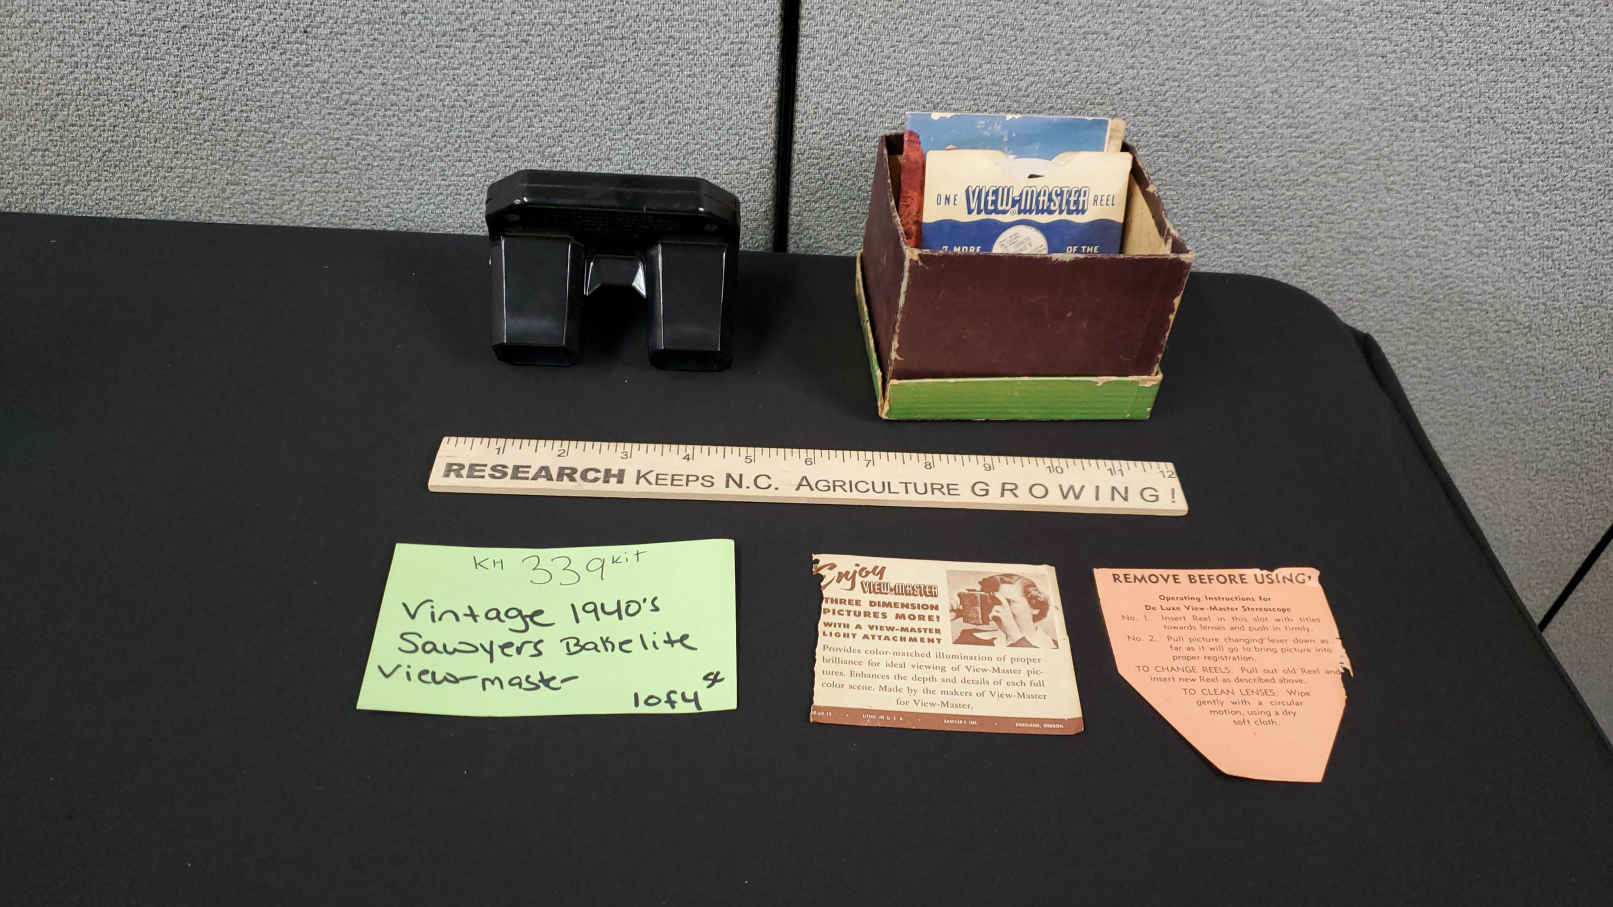 ONE VIEW-MASTER REEL
7 MORE OF THE
1 2 3 4 5 6 7 8 9 10 11 12
RESEARCH KEEPS N.C. AGRICULTURE GROWING!
KH 339 kit
Vintage 1940's
Sawyers Bakelite
View-master
1 of 4
Enjoy
VIEW-MASTER
THREE DIMENSION
PICTURES MORE!
WITH A VIEW-MASTER
LIGHT ATTACHMENT
Provides color-matched illumination of proper
brilliance for ideal viewing of View-Master pic-
tures. Enhances the depth and details of each full
color scene. Made by the makers of View-Master
for View-Master.
LITHO IN U.S.A. • SAWYER'S INC. • PORTLAND, OREGON
REMOVE BEFORE USING
Operating Instructions for
De Luxe View-Master Stereoscope
No. 1. Insert Reel in this slot with titles
towards lenses and push in firmly.
No. 2. Pull picture changing lever down as
far as it will go to bring picture into
proper registration.
TO CHANGE REELS: Pull out old Reel and
insert new Reel as described above.
TO CLEAN LENSES: Wipe
gently with a circular
motion, using a dry
soft cloth.